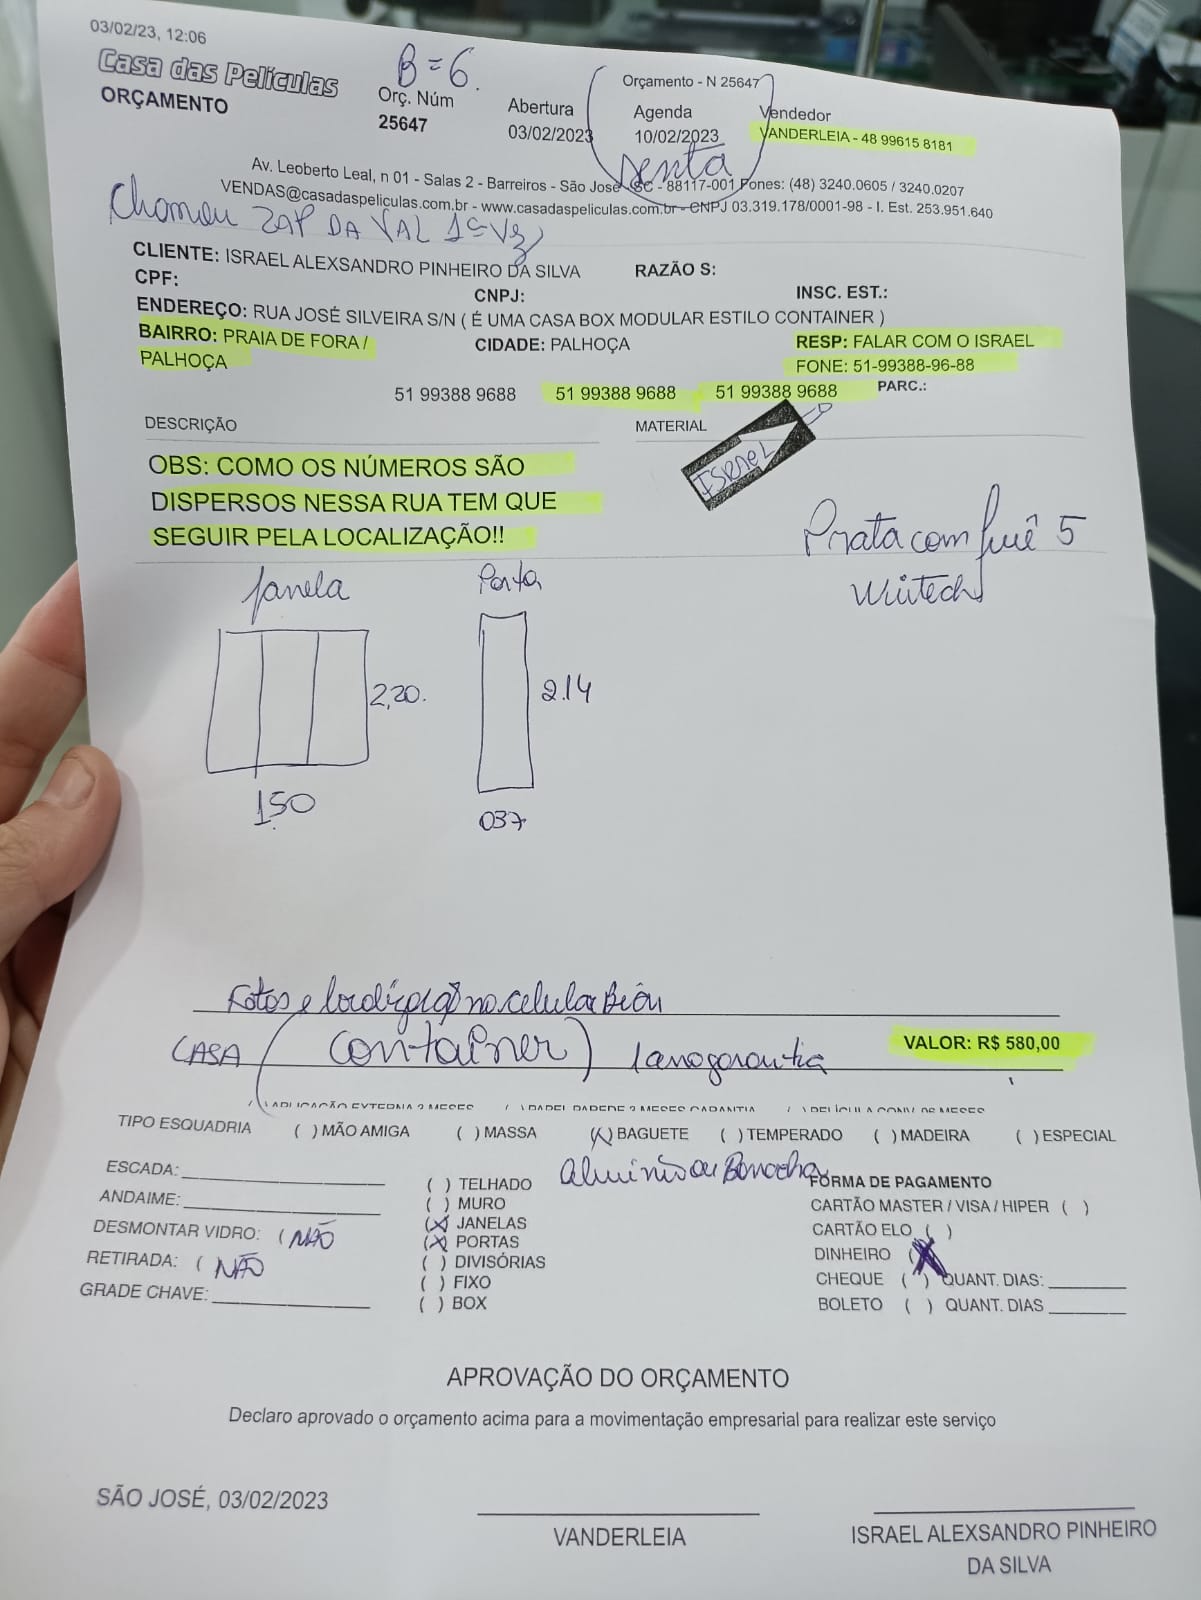 03/02/23, 12:06
Casa das Películas
ORÇAMENTO
B = 6.
Orç. Núm
25647
Abertura
03/02/2023
Orçamento - N 25647
Agenda
10/02/2023
Sexta
Vendedor
VANDERLEIA - 48 99615 8181
Av. Leoberto Leal, n 01 - Salas 2 - Barreiros - São José - SC - 88117-001 Fones: (48) 3240.0605 / 3240.0207
VENDAS@casadaspeliculas.com.br - www.casadaspeliculas.com.br - CNPJ 03.319.178/0001-98 - I. Est. 253.951.640
Chamou ZAP DA VAL 1ª Vez
CLIENTE: ISRAEL ALEXSANDRO PINHEIRO DA SILVA RAZÃO S:
CPF: CNPJ: INSC. EST.:
ENDEREÇO: RUA JOSÉ SILVEIRA S/N ( É UMA CASA BOX MODULAR ESTILO CONTAINER )
BAIRRO: PRAIA DE FORA /
PALHOÇA
CIDADE: PALHOÇA
RESP: FALAR COM O ISRAEL
FONE: 51-99388-96-88
51 99388 9688 51 99388 9688 51 99388 9688 PARC.:
DESCRIÇÃO MATERIAL
ISRAEL
OBS: COMO OS NÚMEROS SÃO
DISPERSOS NESSA RUA TEM QUE
SEGUIR PELA LOCALIZAÇÃO!!
Prata com fumê 5
Wintech
Janela Porta
2,20. 2.14
1.50 037
Fotos e localização no celular
CASA (Container) 1 ano garantia
VALOR: R$ 580,00
( ) APLICAÇÃO EXTERNA 3 MESES ( ) PAPEL PAREDE 3 MESES GARANTIA ( ) PELÍCULA CONV. 06 MESES
TIPO ESQUADRIA ( ) MÃO AMIGA ( ) MASSA (X) BAGUETE ( ) TEMPERADO ( ) MADEIRA ( ) ESPECIAL
Aluminio ou Borracha
ESCADA:
ANDAIME:
DESMONTAR VIDRO: ( NÃO
RETIRADA: ( NÃO
GRADE CHAVE:
( ) TELHADO
( ) MURO
(X) JANELAS
(X) PORTAS
( ) DIVISÓRIAS
( ) FIXO
( ) BOX
FORMA DE PAGAMENTO
CARTÃO MASTER / VISA / HIPER ( )
CARTÃO ELO ( )
DINHEIRO (X
CHEQUE ( ) QUANT. DIAS:
BOLETO ( ) QUANT. DIAS
APROVAÇÃO DO ORÇAMENTO
Declaro aprovado o orçamento acima para a movimentação empresarial para realizar este serviço
SÃO JOSÉ, 03/02/2023
VANDERLEIA
ISRAEL ALEXSANDRO PINHEIRO
DA SILVA